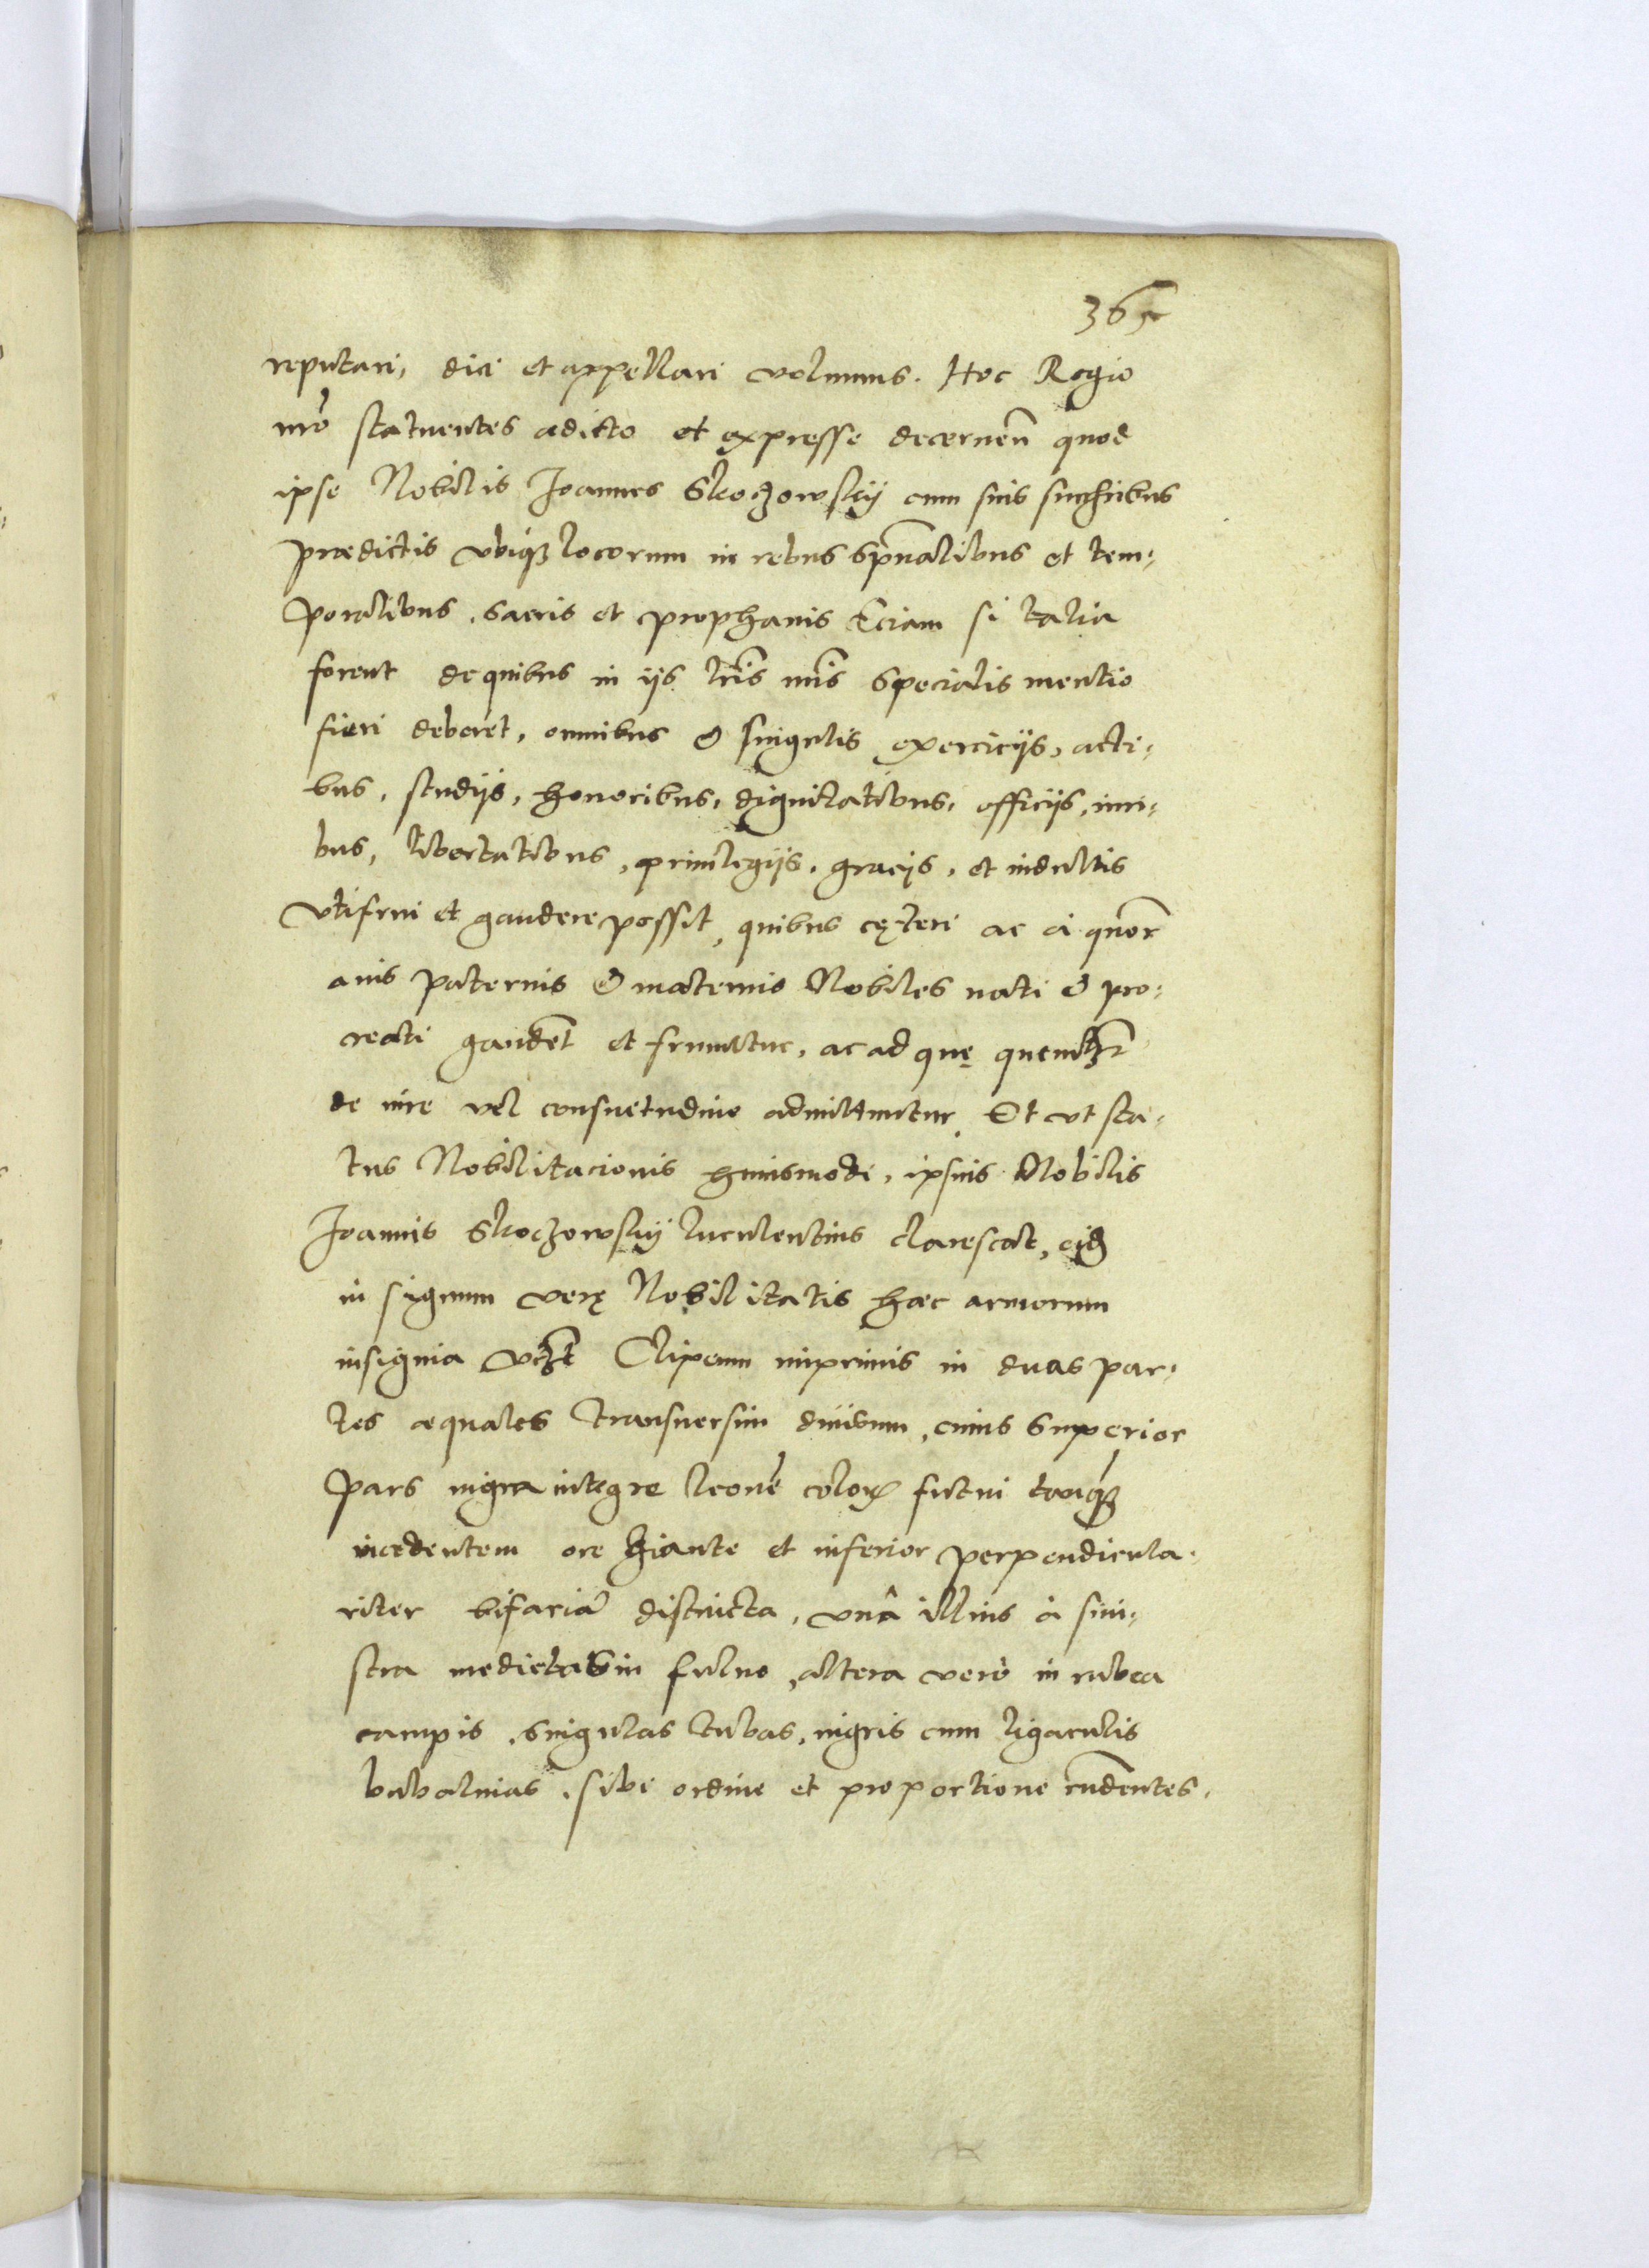 365
reputari, dici et appellari volumus. Hoc Regio
nrō statuentes aedicto et expresse decernen̄ quod
ipse Nobilis Joannes Skoczowskÿ cum suis
praedictis vbiqȝ locorum in rebus spūalibus et tem¬
poralibus, sacris et prophanis Etiam si talia
forent de quibus in ijs lrīs nrīs specialis mentio
fieri deberet, omnibus & singulis exercicijs, acti¬
bus, studijs, honoribus, dignitatibus, officijs, iuri¬
bus, libertatibus, priuilegijs, gracijs, et indultis
vti frui et gaudere possit, quibus cęteri ac à quor
auis paternis & maternis Nobiles nati & pro¬
creati gaudēt et fruuntur, ac ad quę
de iure vel consuetudine admittuntur. Et vt sta¬
tus Nobilitacionis huiusmodi, ipsius Nobilis
Joannis Skoczowskÿ luculentius clarescat, eidē
in signum verę Nobilitatis haec armorum
insignia vidȝt Clipeum imprimis in duas par¬
tes aequales transuersim diuisum, cuius superior
pars nigra integre leonē colorę fului
incedentem ore hiante et inferior perpendicula¬
riter bifariā districta, vnâ illius à sini¬
stra medietas in fuluo, altera verò in rubea
campis, singulas tubas, nigris cum ligaculis
bubalinas, sibi ordine et proportione rn̄dentes.